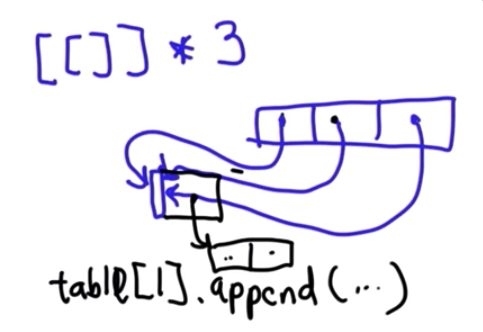 [[]] * 3
table[1].append(...)